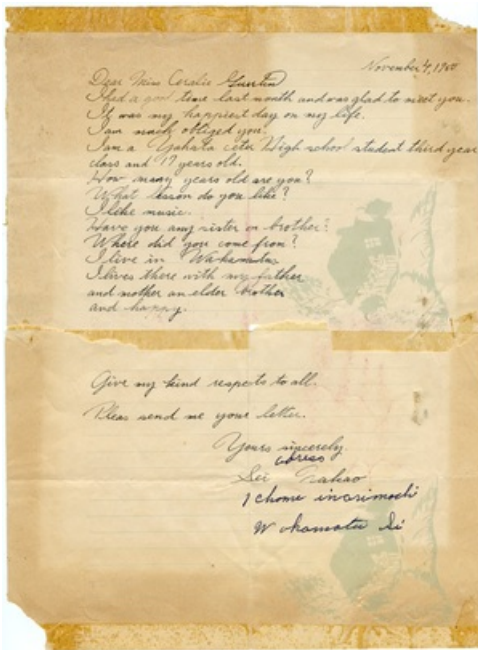 November 4, 1950
Dear Miss Coralie
I had a good time last month and was glad to meet you.
It was my happiest day on my life.
I am much obliged you.
I am a Yahata High school student third year
class and 17 years old.
How many years old are you?
What lesson do you like?
I like music.
Have you any sister or brother?
Where did you come from?
I live in Wakamatu
I lives there with my father
and mother an elder brother
and happy.
Give my kind respects to all.
Pleas send me your letter.
Yours sincerely.
adress
Sei Nakao
1 chome inarimachi
Wakamatu Si